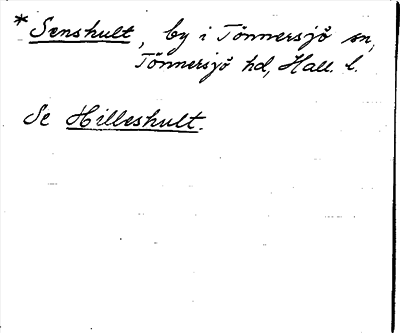 * Senshult, by i Tönnersjö sn,
Tönnersjö hd, Hall. l.
Se Hilleshult.